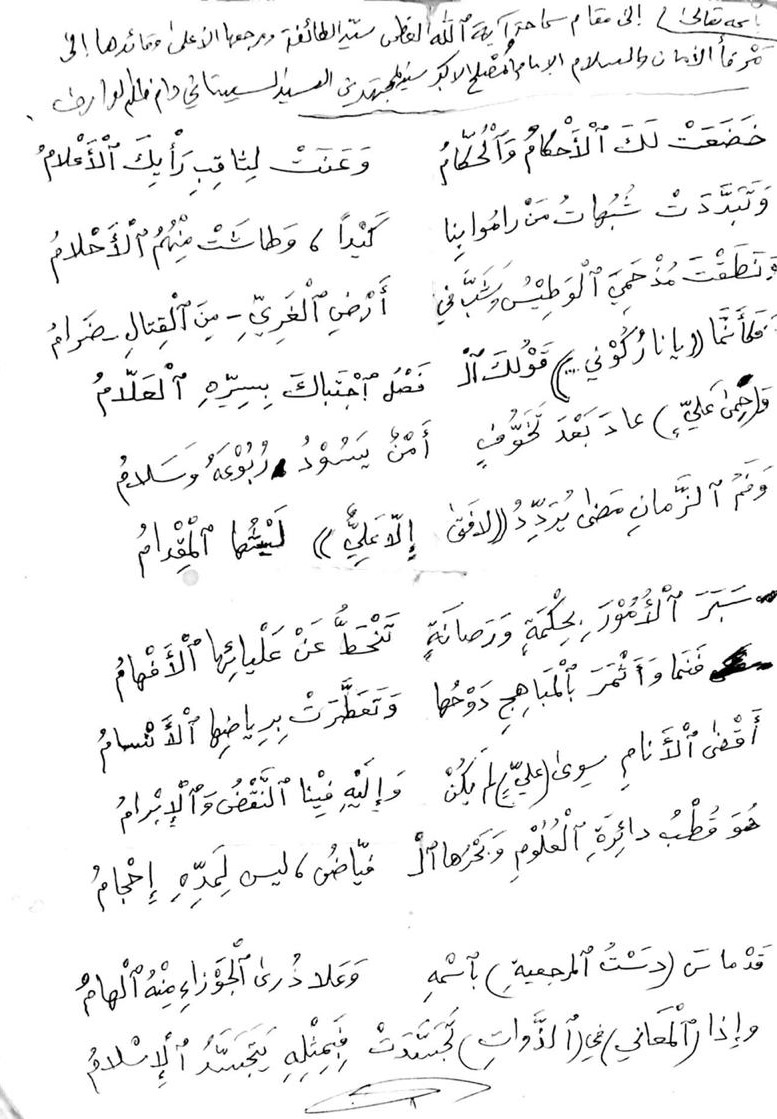 باسمه تعالى / إلى مقام سماحة آية ٱلله العظمى سيّد الطائفة ومرجعها الأعلى وقائدها إلى
مرفأ الأمان والسلام الإمام المصلح الأكبر سيد المجتهدين السيد السيستاني دام ظله الوارف.
خَضَعَتْ لَكَ ٱلْأَحْكامُ وَٱلْحُكّامُ وَعَنَتْ لِثاقِبِ رَأْيِكَ ٱلْأَعْلامُ
وَتَبَدَّدَتْ شُبُهاتُ مَنْ رامُوا بِنا كَيْداً، وَطاشَتْ مِنْهُمُ ٱلْأَحْلامُ
وَنَطَقْتَ مُذْ حَمِيَ ٱلْوَطِيْسُ وَشَبَّ في أَرْضِ ٱلْغَرِيِّ - مِنَ ٱلْقِتالِ - ضَرامُ
فَكَأَنَّما ((يا نارُ كُوْني...)) قَوْلُكَ ٱلْـ فَصْلُ ٱجْتَباكَ بِسِرِّهِ ٱلْعَلّامُ
وَ(حِمىٰ عَليٍّ) عادَ بَعْدَ تَخَوُّفٍ أَمْنٌ يَسُوْدُ رُبُوْعَهُ وَسَلامُ
وَفَمُ ٱلزَّمانِ مَضىٰ يُرَدِّدُ ((لا فَتىٰ إِلّا عَلِيٌّ)) لَيْثُها ٱلْمِقْدامُ
سَبَرَ ٱلْأُمُوْرَ بِحِكْمَةٍ وَرَصانَةٍ تَنْحَطُّ عَنْ عَلْيائِها ٱلْأَفْهامُ
فَنَما وَأَثْمَرَ بِٱلْمَباهِجِ دَوْحُها وَتَعَطَّرَتْ بِرِياضِها ٱلْأَنْسامُ
أَقْضىٰ ٱلْأَنامِ سِوىٰ (عليٍّ) لَمْ يَكُنْ وَإِلَيْهِ فِيْنا ٱلنَّقْضُ وَٱلْإِبْرامُ
هُوَ قُطْبُ دائِرَةِ ٱلْعُلُوْمِ وَبَحْرُها ٱلْـ فَيّاضُ، ليس لِمَدِّهِ إِحْجامُ
قَدْ ماسَ (دَسْتُ ٱلمرجعيةِ) بِٱسْمِهِ وَعَلا ذُرىٰ ٱلْجَوْزاءِ مِنْهُ ٱلْهامُ
وإذا (ٱلْمَعاني) في (ٱلذَّواتِ) تَجَسَّدَتْ فَبِمِثْلِهِ يَتَجَسَّدُ ٱلْإِسْلامُ